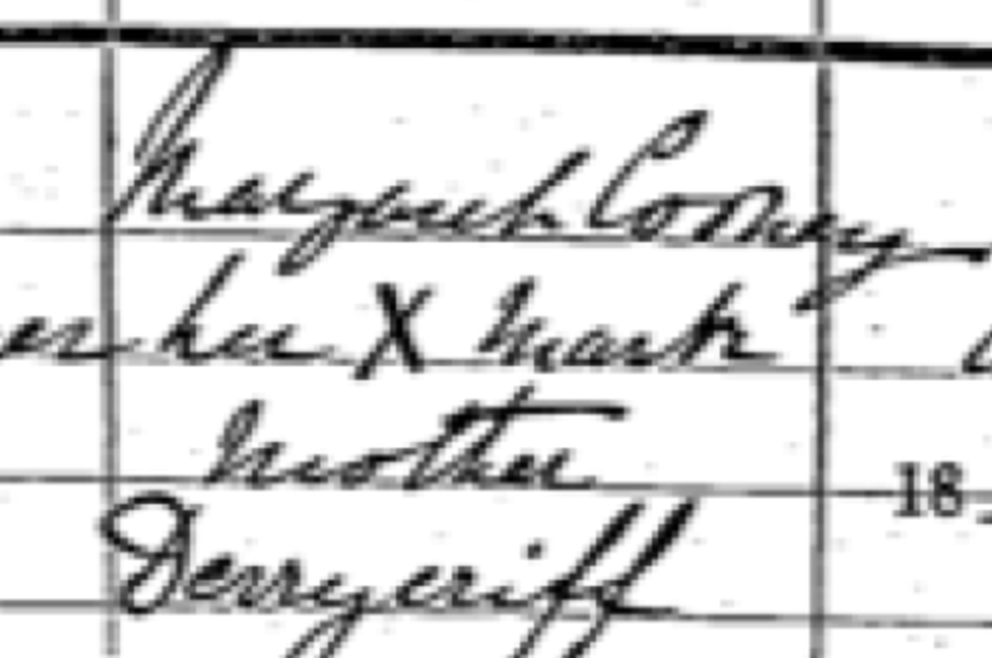 Margaret Cooney
er her X Mark
Mother
18
Derrycriff